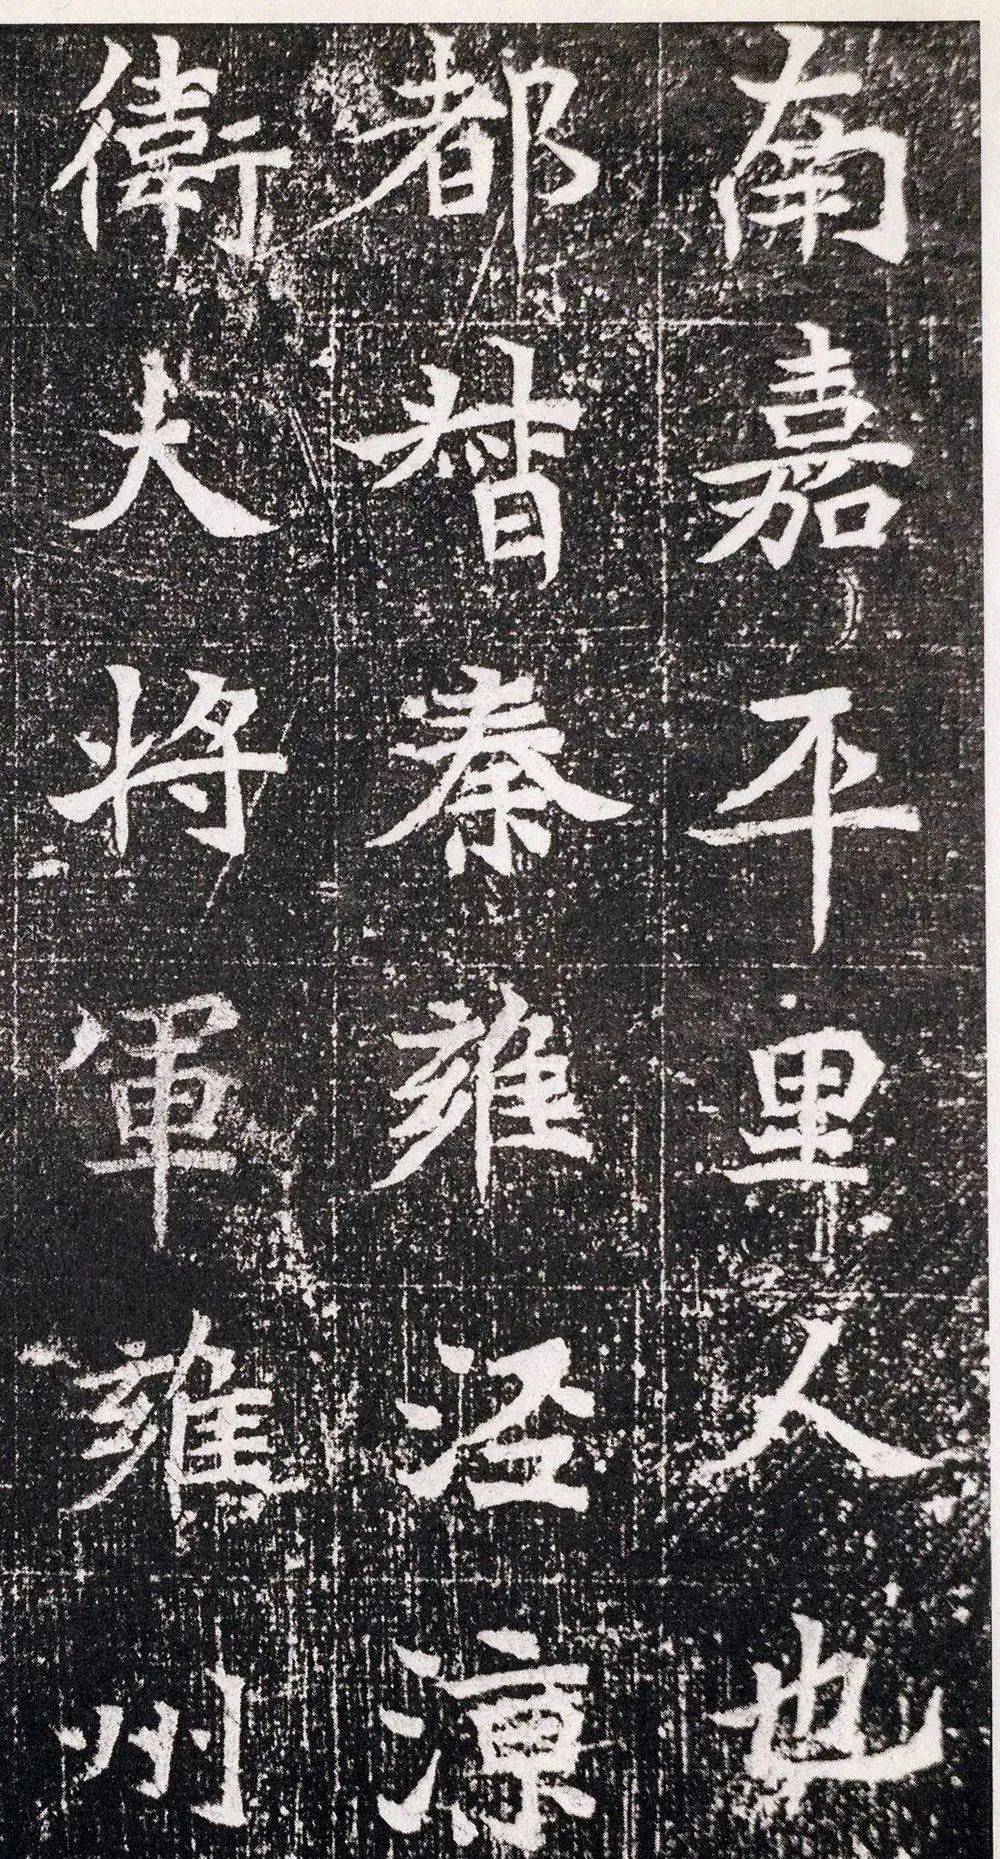 南嘉平里人也
都督秦雍涇涼
衛大將軍雍州